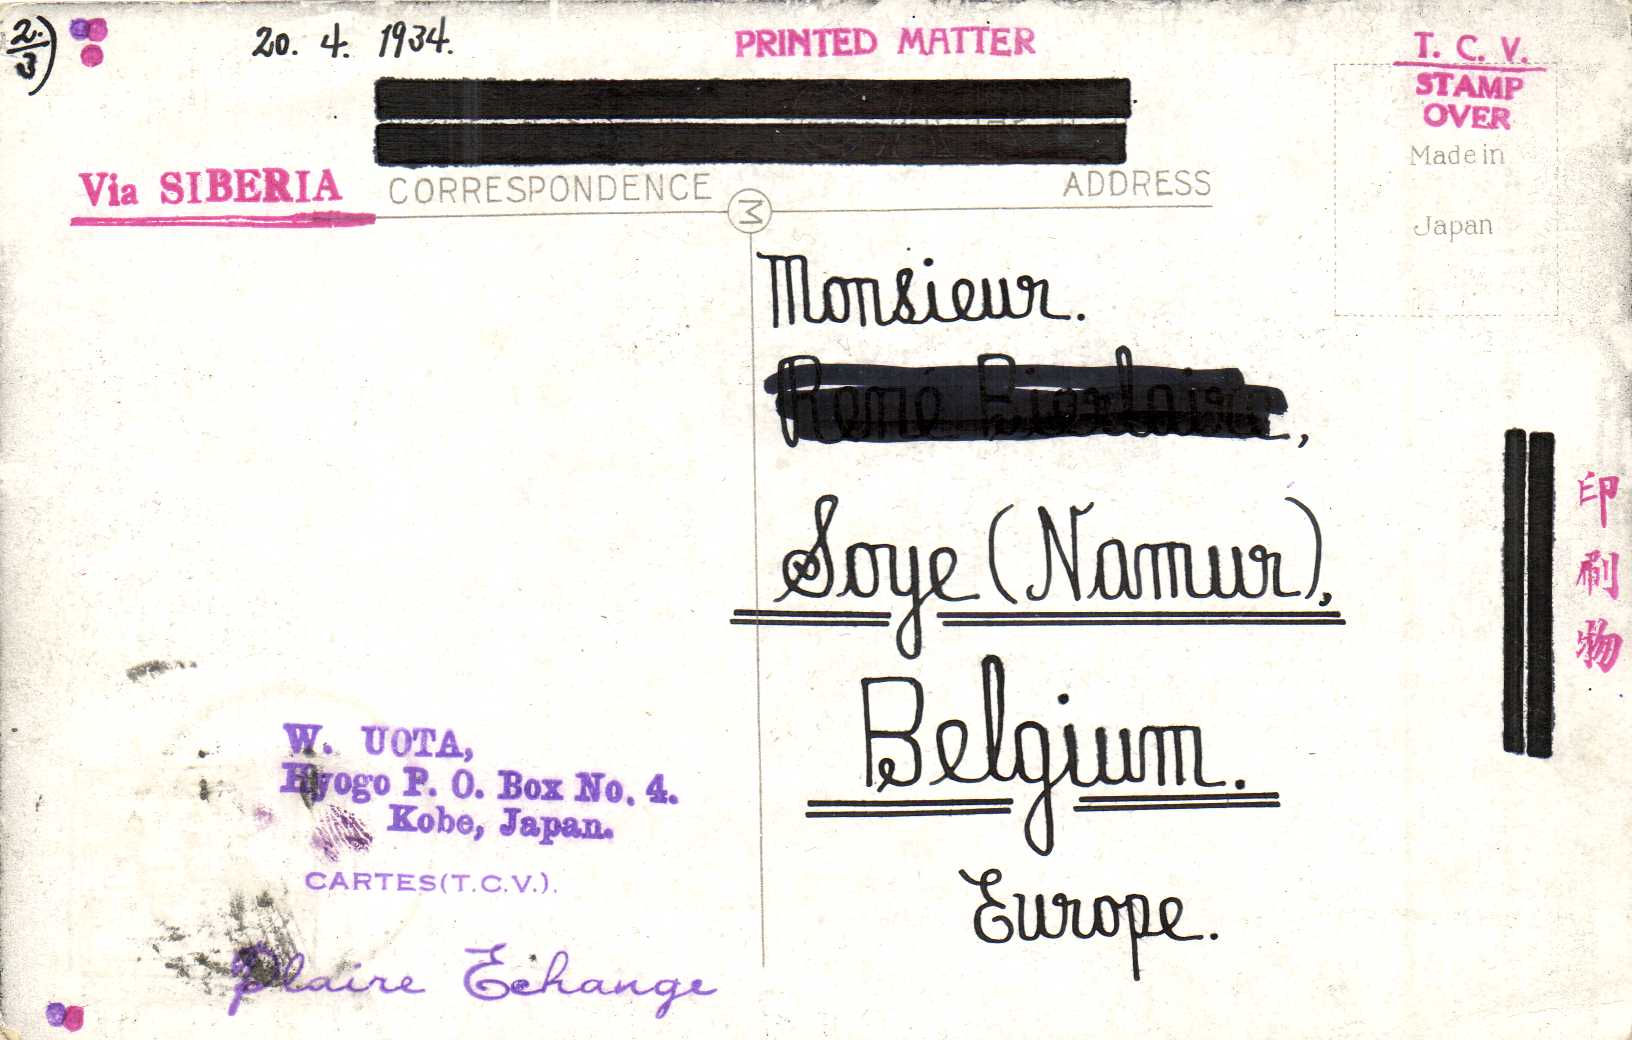 2./3)
20. 4. 1934.
PRINTED MATTER
T. C. V.
STAMP
OVER
Made in
Japan
Via SIBERIA
CORRESPONDENCE
M
ADDRESS
Monsieur.
Soye (Namur),
Belgium.
Europe.
印刷物
W. UOTA,
Hyogo P. O. Box No. 4.
Kobe, Japan.
CARTES(T.C.V.).
Plaire Echange